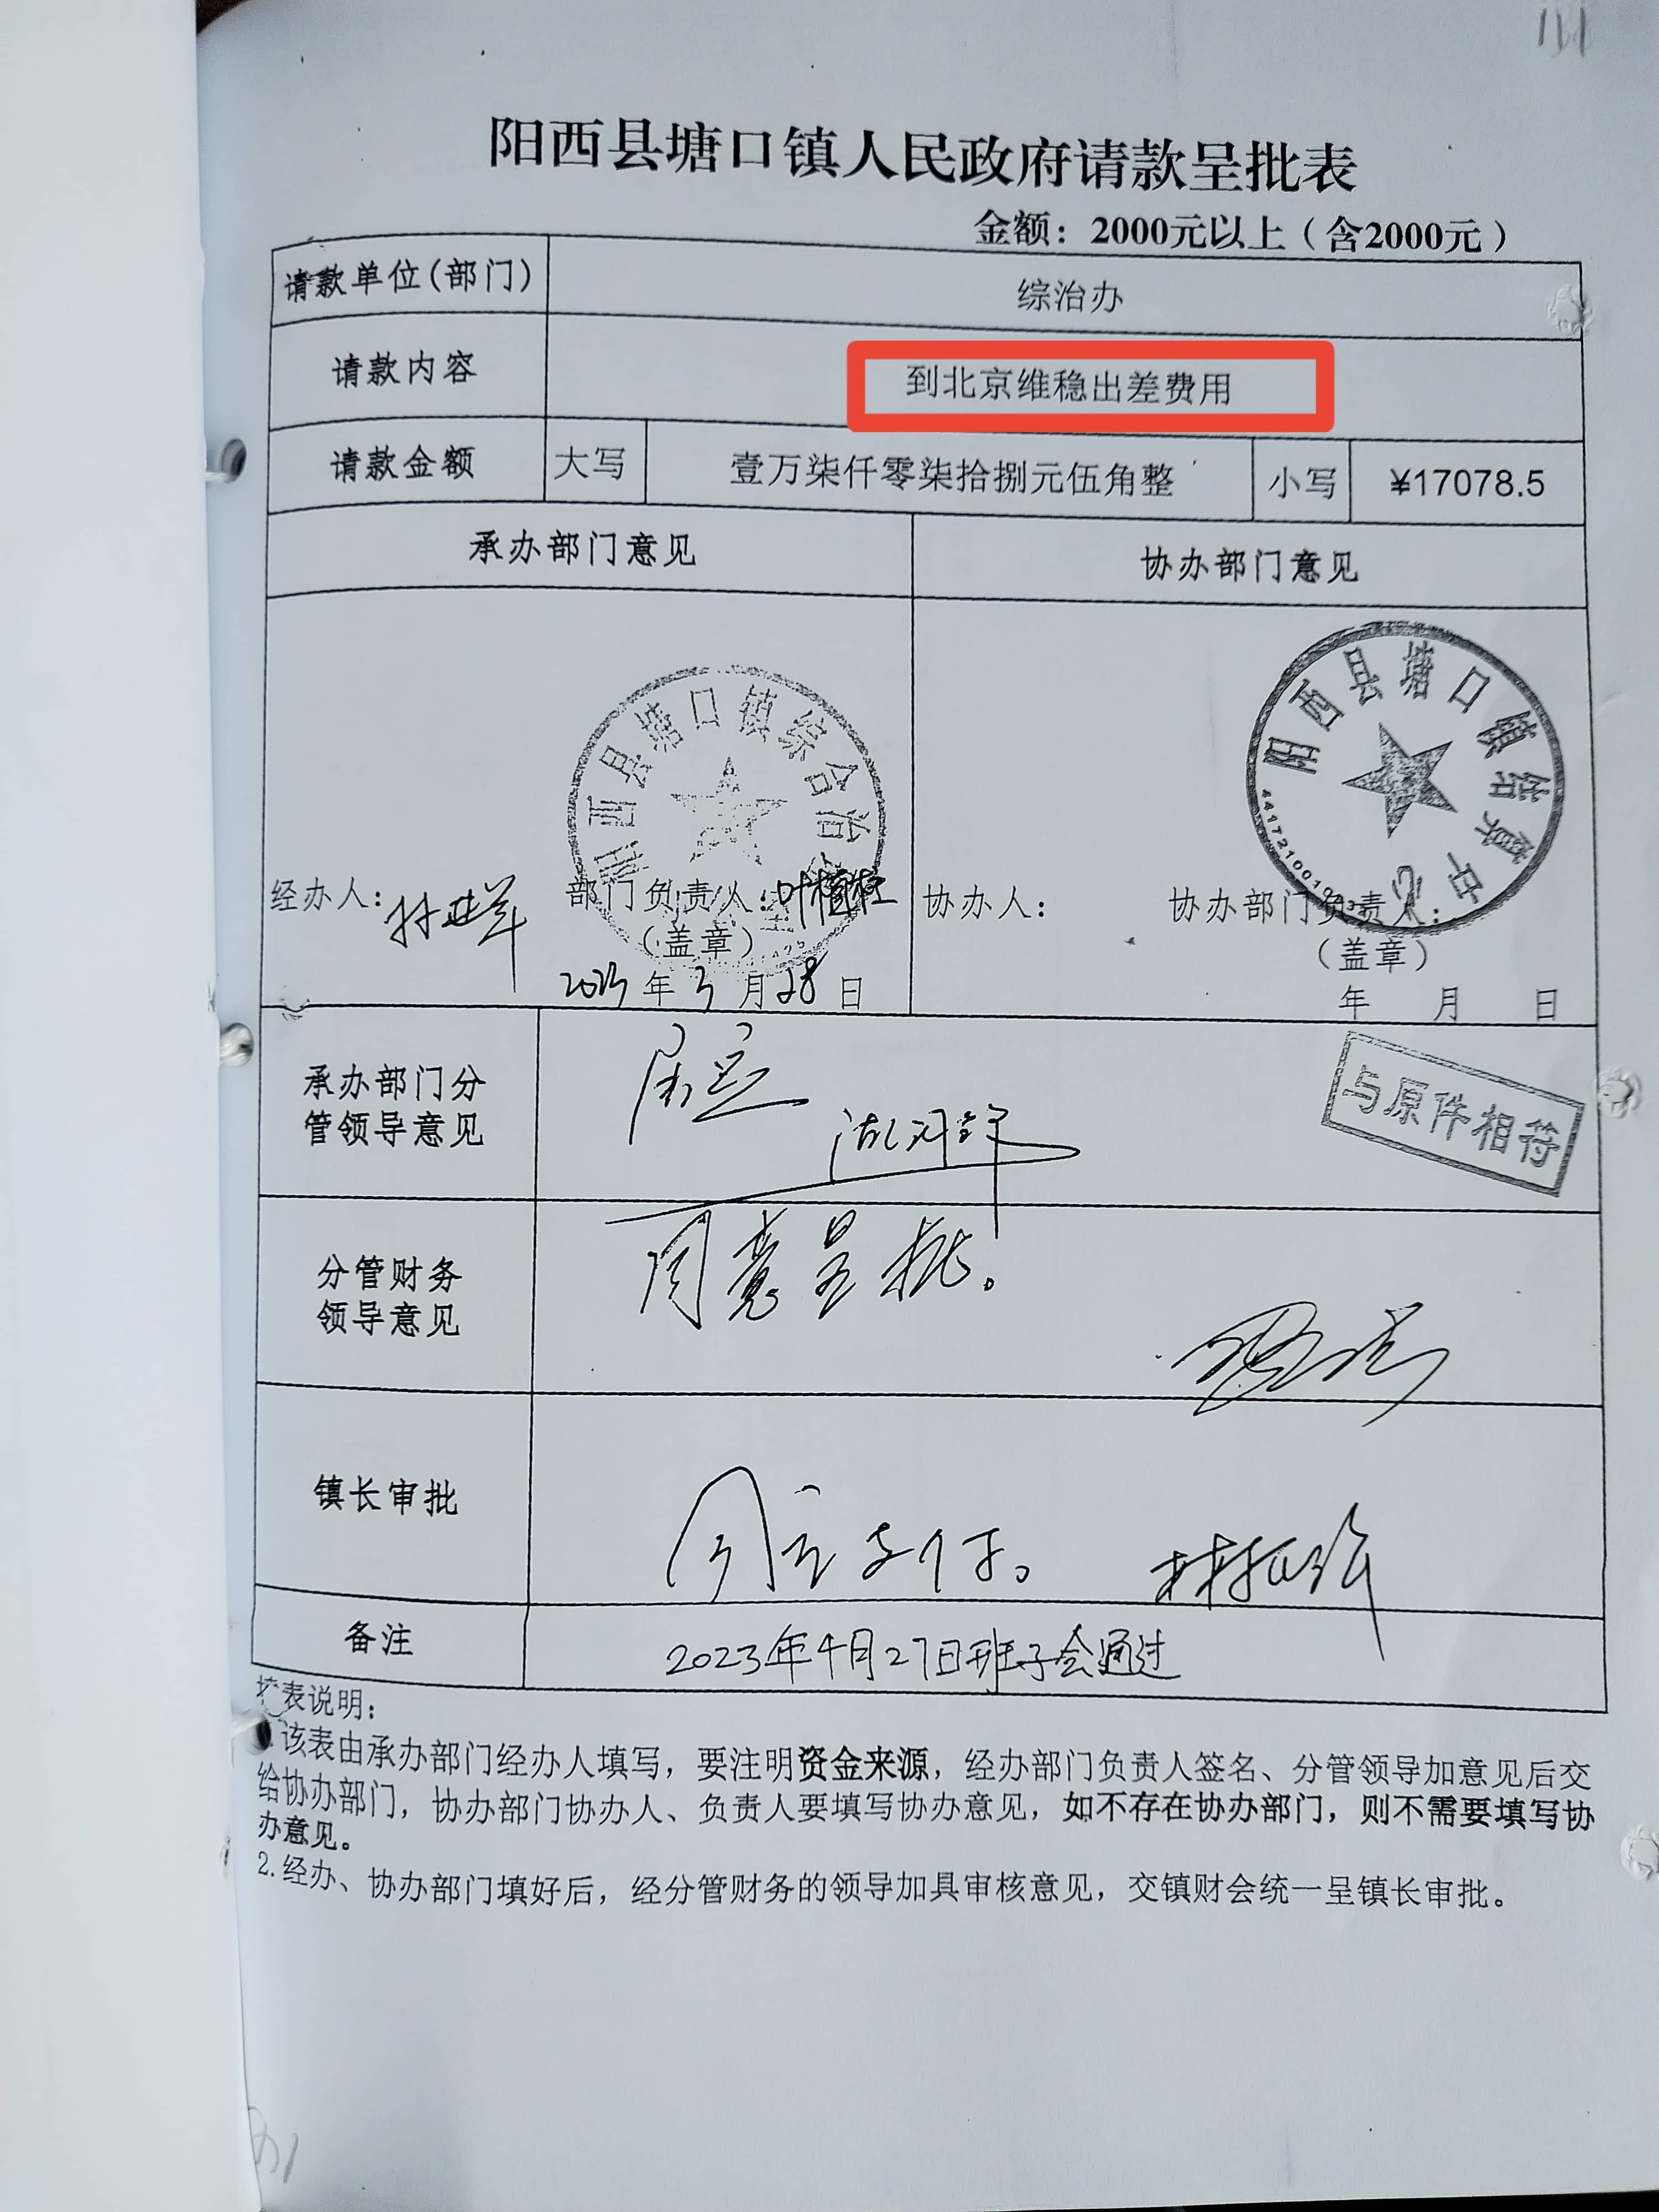 阳西县塘口镇人民政府请款呈批表
金额：2000元以上（含2000元）
请款单位(部门) 综治办
请款内容 到北京维稳出差费用
请款金额 大写 壹万柒仟零柒拾捌元伍角整 小写 ¥17078.5
承办部门意见 协办部门意见
阳西县塘口镇综合治
阳西县塘口镇结算中心
经办人： 部门负责人：叶植柱 协办人： 协办部门负责人：
（盖章） （盖章）
2023年3月28日 年 月 日
承办部门分
管领导意见
与原件相符
分管财务
领导意见
同意呈批。
镇长审批 同意支付。
备注 2023年4月27日班子会通过
表说明：
该表由承办部门经办人填写，要注明资金来源，经办部门负责人签名、分管领导加意见后交
给协办部门，协办部门协办人、负责人要填写协办意见，如不存在协办部门，则不需要填写协
办意见。
2.经办、协办部门填好后，经分管财务的领导加具审核意见，交镇财会统一呈镇长审批。